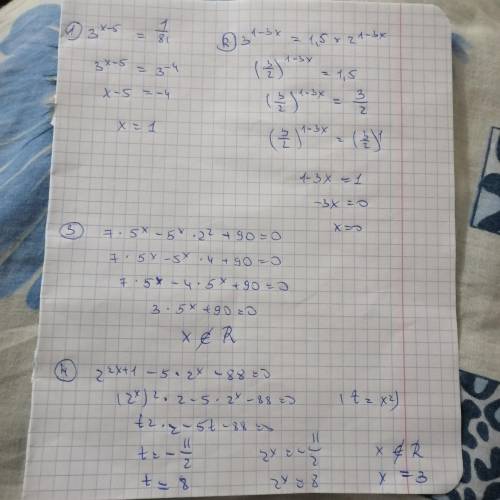 1) 3^(x-5) = 1/81
3^(x-5) = 3^(-4)
x-5 = -4
x = 1
2) 3^(1-3x) = 1,5 * 2^(1-3x)
(3/2)^(1-3x) = 1,5
(3/2)^(1-3x) = 3/2
(3/2)^(1-3x) = (3/2)^1
1-3x = 1
-3x = 0
x=0
3) 7·5^x - 5^x·2² + 90 = 0
7·5^x - 5^x·4 + 90 = 0
7·5^x - 4·5^x + 90 = 0
3·5^x + 90 = 0
x ∉ R
4) 2^(2x+1) - 5·2^x - 88 = 0
(2^x)²·2 - 5·2^x - 88 = 0 (t = x²)
t²·2 - 5t - 88 = 0
t = -11/2 2^x = -11/2 x ∉ R
t = 8 2^x = 8 x = 3